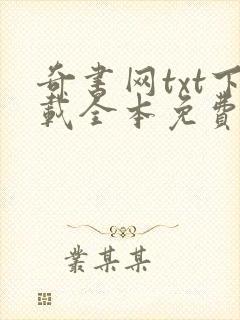 奇书网txt下
载全本免費
叢某某